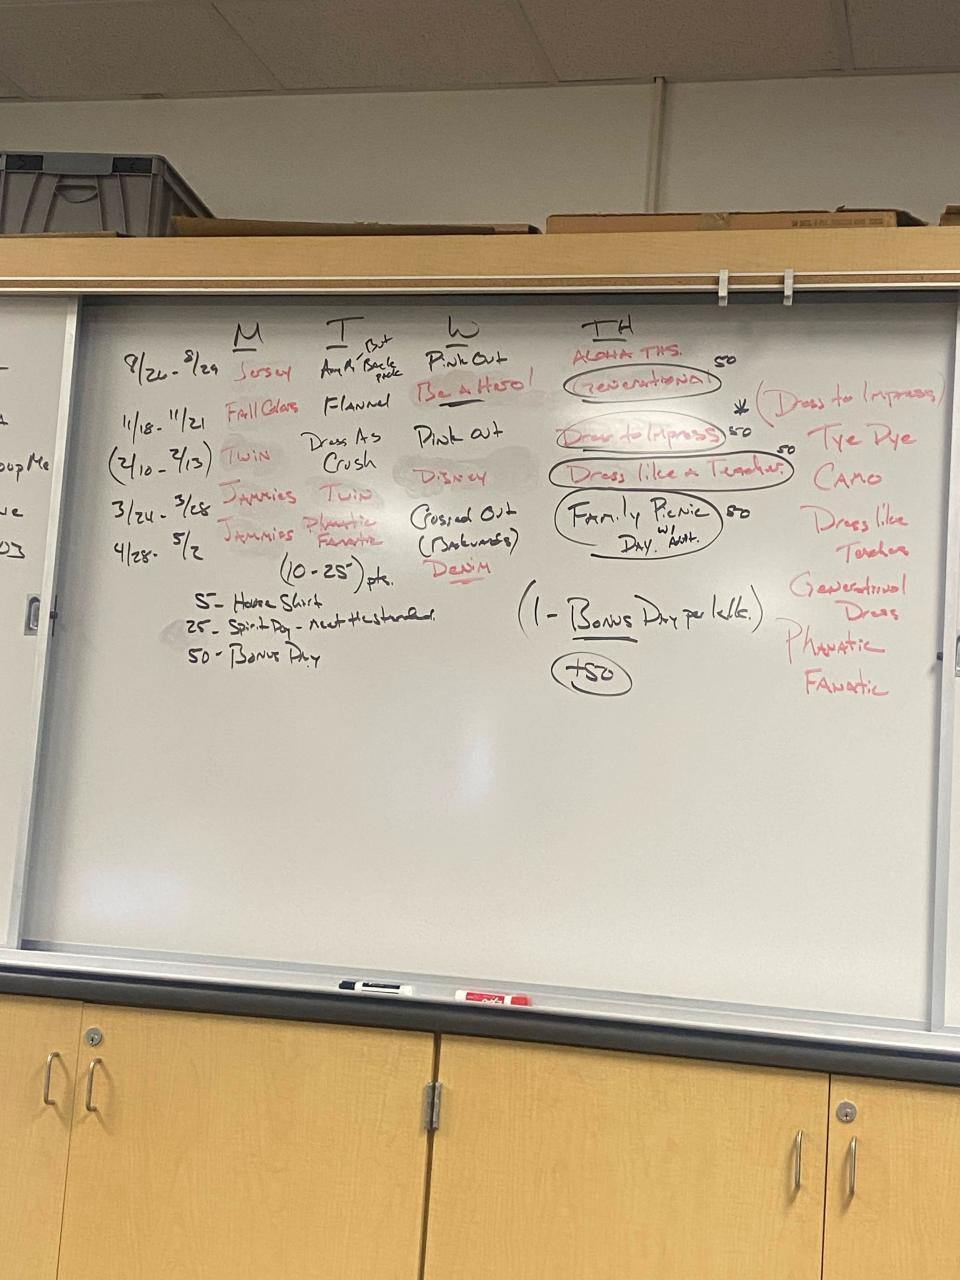 M T W TH
8/26 - 8/29 Jersey Any But Back pack Pink Out ALOHA THS.
Be a Hero! Generational 50
11/18 - 11/21 Fall Colors Flannel Pink Out Dress to Impress 50 * (Dress to Impress)
(2/10 - 2/13) Twin Dress As Crush Disney Dress like a Teacher. 50
3/24 - 3/28 Jammies Twin Crossed Out (Backwards) Family Picnic Day. w/ 50
4/28 - 5/2 Jammies Phanatic Fanatic Denim
Tye Dye
Camo
Dress like
Teacher
Generational
Dress
Phanatic
Fanatic
(10 - 25) pts.
5 - House Shirt
25 - Spirit Day - meet the standard.
50 - Bonus Day
(1 - Bonus Day per
+50
oup Me
03